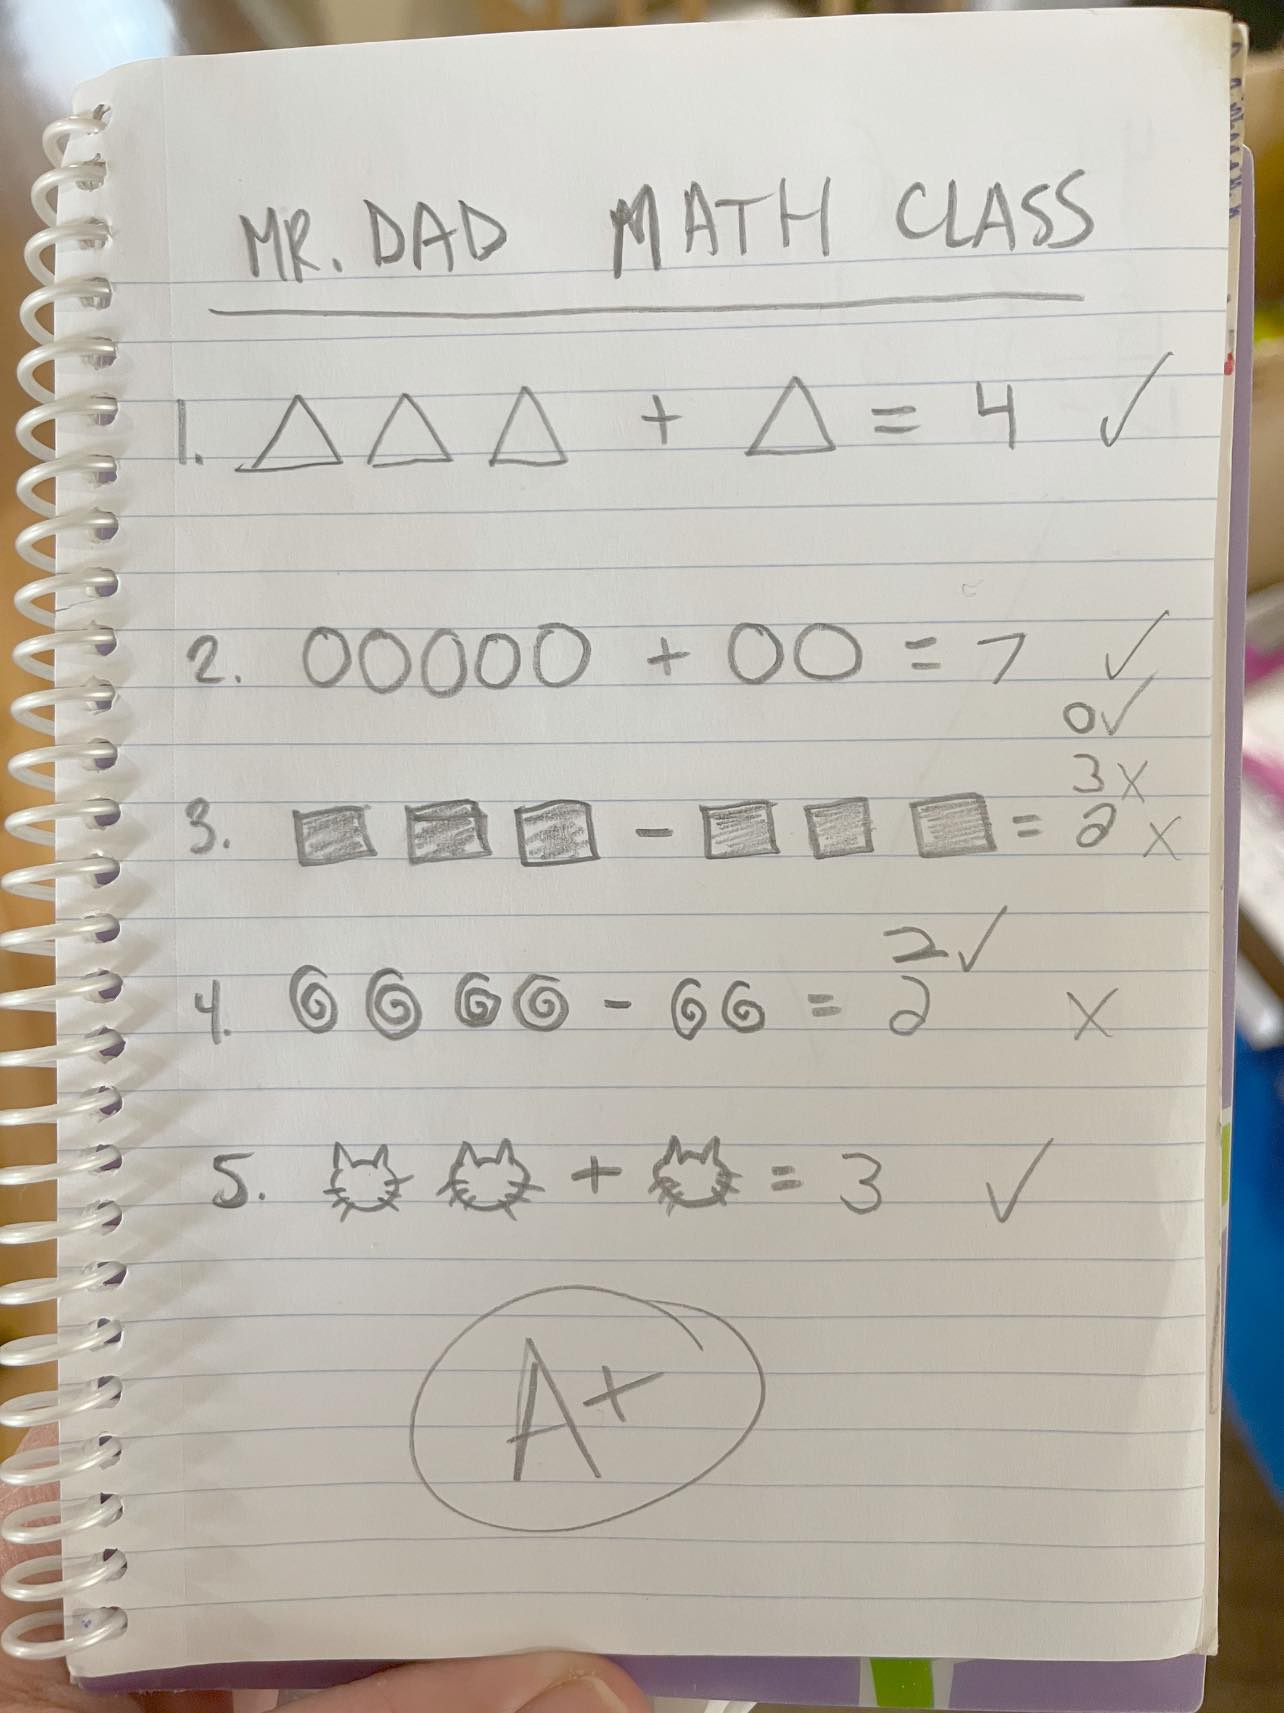 MR. DAD MATH CLASS
1. △ △ △ + △ = 4 ✓
2. OOOOO + OO = 7 ✓
0 ✓
3 X
3. ■ ■ ■ - ■ ■ ■ = 2 X
2 ✓
4. - = 2 X
5. + = 3 ✓
A+